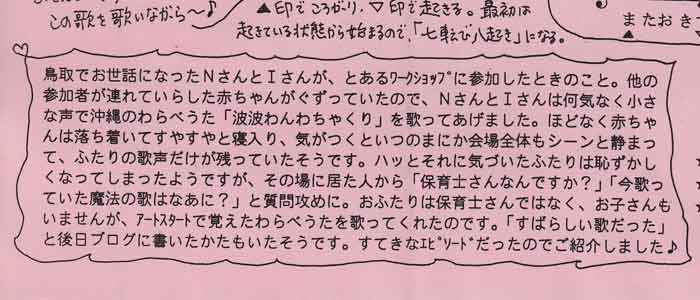 この歌を歌いながら〜♪
▲印でころがり、▽印で起きる。最初は
起きている状態から始まるので、「七転び八起き」になる。
またおき
▲
鳥取でお世話になったNさんとIさんが、とあるワークショップに参加したときのこと。他の
参加者が連れていらした赤ちゃんがぐずっていたので、NさんとIさんは何気なく小さ
な声で沖縄のわらべうた「波波わんわちゃくり」を歌ってあげました。ほどなく赤ちゃ
んは落ち着いてすやすやと寝入り、気がつくといつのまにか会場全体もシーンと静まっ
て、ふたりの歌声だけが残っていたそうです。ハッとそれに気づいたふたりは恥ずかし
くなってしまったようですが、その場に居た人から「保育士さんなんですか?」「今歌っ
ていた魔法の歌はなあに?」と質問攻めに。おふたりは保育士さんではなく、お子さんも
いませんが、アートスタートで覚えたわらべうたを歌ってくれたのです。「すばらしい歌だった」
と後日ブログに書いたかたもいたそうです。すてきなエピソードだったのでご紹介しました♪